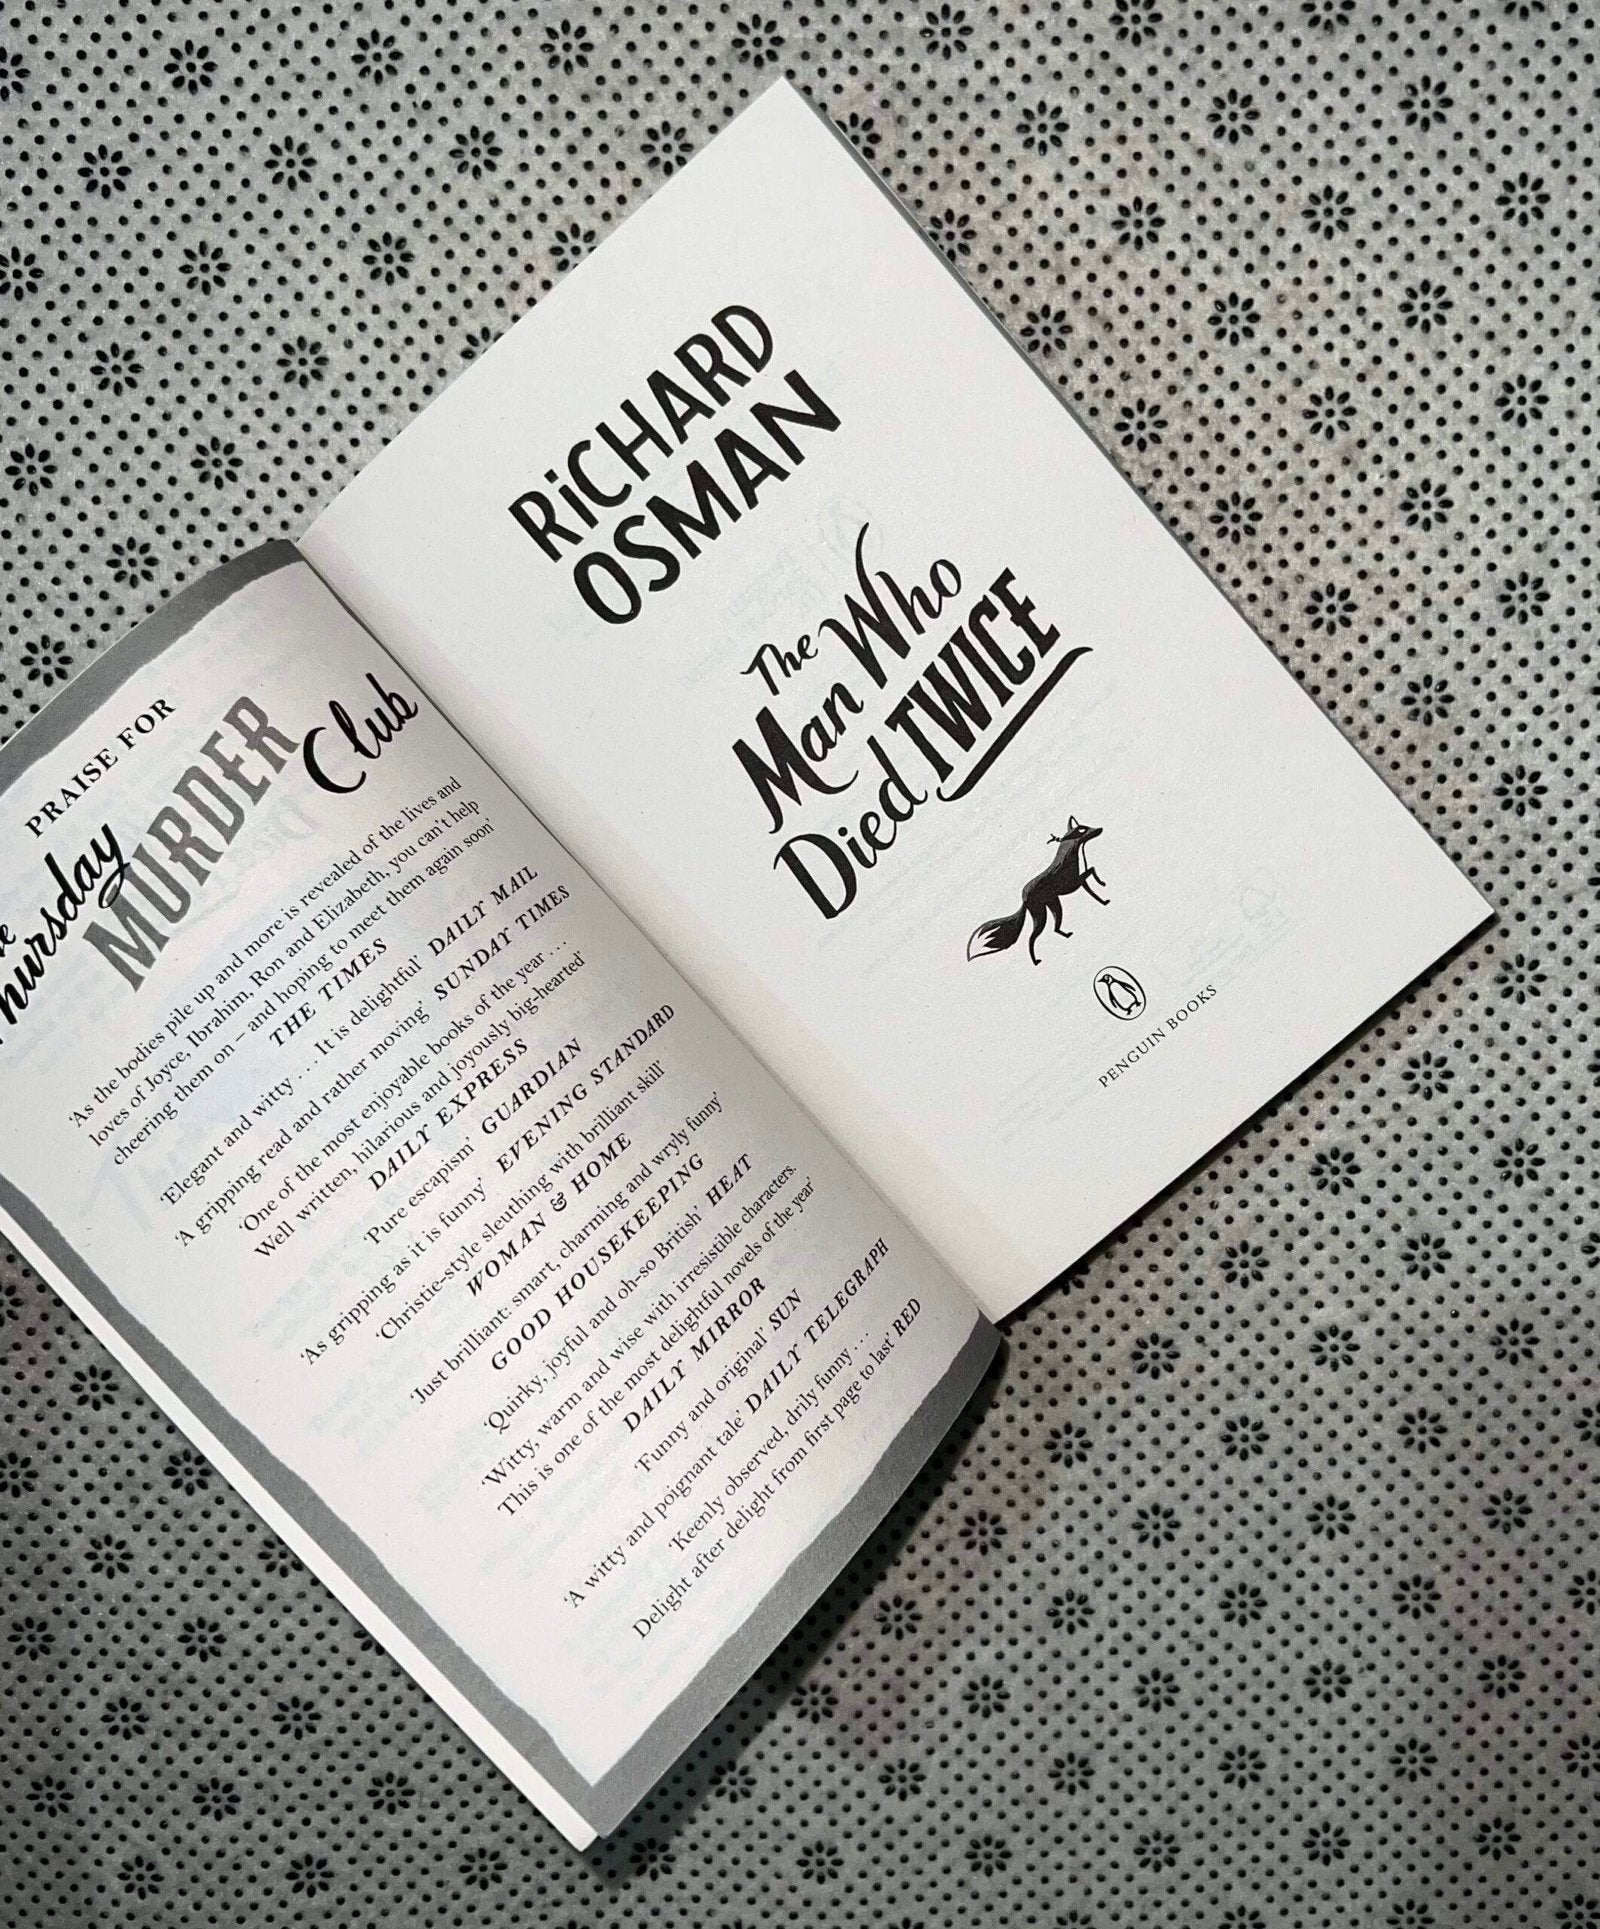 PRAISE FOR
Thursday
MURDER
Club
‘As the bodies pile up and more is revealed of the lives and
loves of Joyce, Ibrahim, Ron and Elizabeth, you can’t help
cheering them on – and hoping to meet them again soon’
THE TIMES
‘Elegant and witty . . . It is delightful’ DAILY MAIL
‘A gripping read and rather moving’ SUNDAY TIMES
‘One of the most enjoyable books of the year . . .
Well written, hilarious and joyously big-hearted’
DAILY EXPRESS
‘Pure escapism’ GUARDIAN
‘As gripping as it is funny’ EVENING STANDARD
‘Christie-style sleuthing with brilliant skill’
WOMAN & HOME
‘Just brilliant: smart, charming and wryly funny’
GOOD HOUSEKEEPING
‘Quirky, joyful and oh-so British’ HEAT
‘Witty, warm and wise with irresistible characters.
This is one of the most delightful novels of the year’
DAILY MIRROR
‘Funny and original’ SUN
‘A witty and poignant tale’ DAILY TELEGRAPH
‘Keenly observed, drily funny . . .
Delight after delight from first page to last’ RED
RiCHARD
OSMAN
The
Man Who
Died TWICE
PENGUIN BOOKS